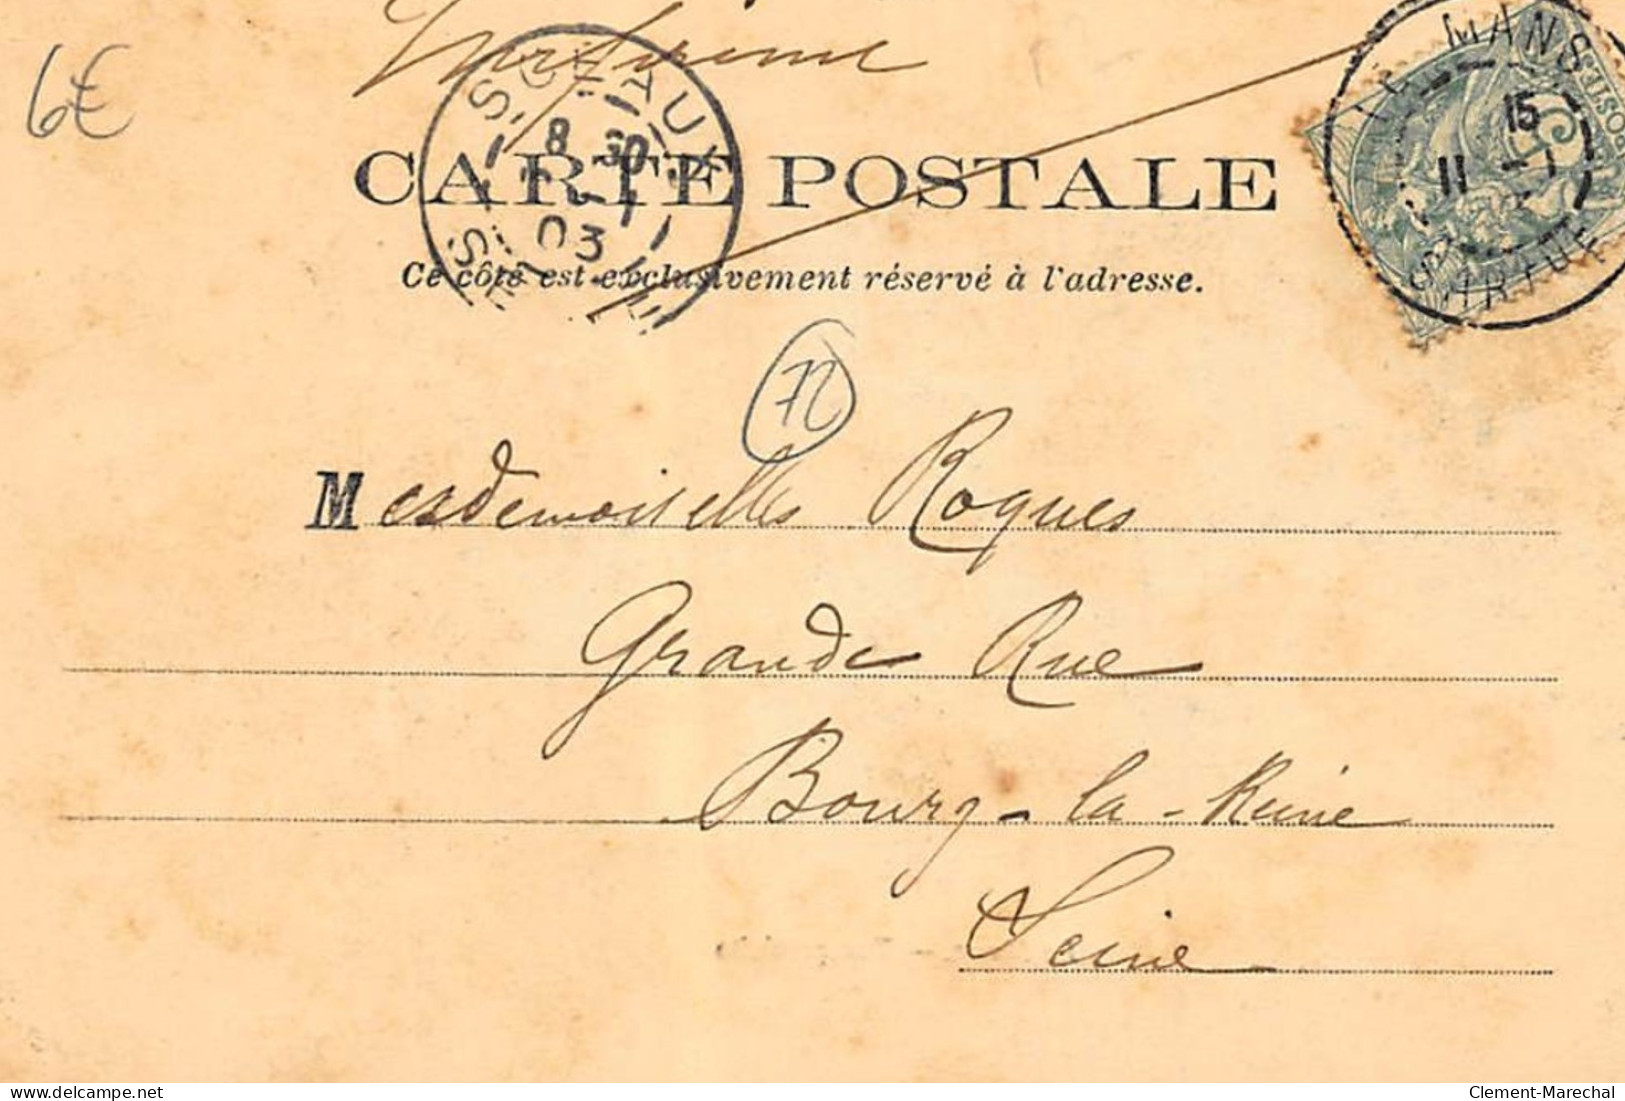 6€
LE MANS
15
11 -
SARTHE
5
POSTES
SCEAUX
8 30
03
SEINE
CARTE POSTALE
Ce côté est exclusivement réservé à l'adresse.
72
Mesdemoiselles Roques
Grande Rue
Bourg-la-Reine
Seine
delcampe.net
Clement-Marechal